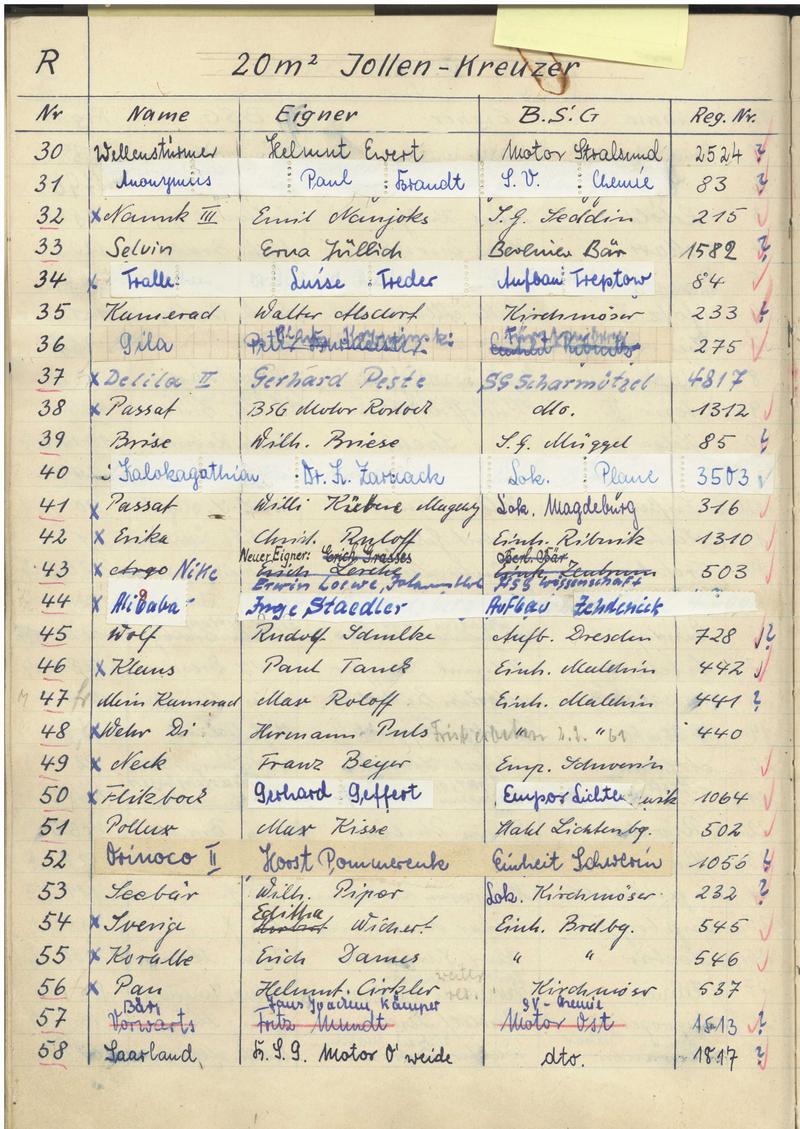 R 20m² Jollen-Kreuzer
Nr Name Eigner B.S.G Reg. Nr.
30 Wellenstürmer Helmut Ewert Motor Stralsund 2524 ?
31 Anonymus Paul Brandt S.V. Chemie 83 ?
32 x Nanuk III Emil Nanjoks S.G. Seddin 215
33 Selvin Erna Jüllich Berliner Bär 1582 ?
34 x Tralle Luise Treder Aufbau Treptow 84
35 Kamerad Walter Alsdorf Kirchmöser 233 ?
36 Gila 275
37 x Delila II Gerhard Peste SG Scharmützel 4817
38 x Passat BSG Motor Rostock dto. 1312
39 Brise Wilh. Briese S.G. Müggel 85 ?
40 Kalokagathian Dr. H. Zarnack Lok. Plane 3503
41 x Passat Willi Magdebg Lok. Magdeburg 316
42 x Erika Christ. Ruloff Einh. Ribnitz 1310
Neuer Eigner: Erich Grasses Berl. Bär
43 x Argo Nike Erich Lerche Einh. Zentrum 503
Erwin Loewe, HSG Wissenschaft
44 x Alibaba Inge Staedler Aufbau Zehdenick
45 Wolf Rudolf Schulke Aufb. Dresden 728 ?
46 x Klaus Paul Tanck Einh. Malchin 442
47 Mein Kamerad Max Roloff Einh. Malchin 441 ?
48 x Wehr Di Hermann Puls " " 61 440
49 x Neck Franz Beyer Emp. Schwerin
50 x Flitzbock Gerhard Geffert Empor Lichten wik 1064
51 Pollux Max Kisse Stahl Lichtenbg. 502
52 Orinoco II Horst Pommerenk Einheit Schwerin 1056 ?
53 Seebär Wilh. Piper Lok. Kirchmöser 232 ?
Editha
54 x Sverige Herbert Wichert Einh. Brdbg. 545
55 x Koralle Erich Dames " " 546
weiter
56 x Pan Helmut Cirkler Kirchmöser 537
Bär Hans Joachim Kämper SV-Chemie
57 Vorwärts Fritz Mundt Motor Ost 1513 ?
58 Saarland H.S.G. Motor O'weide dto. 1817 ?